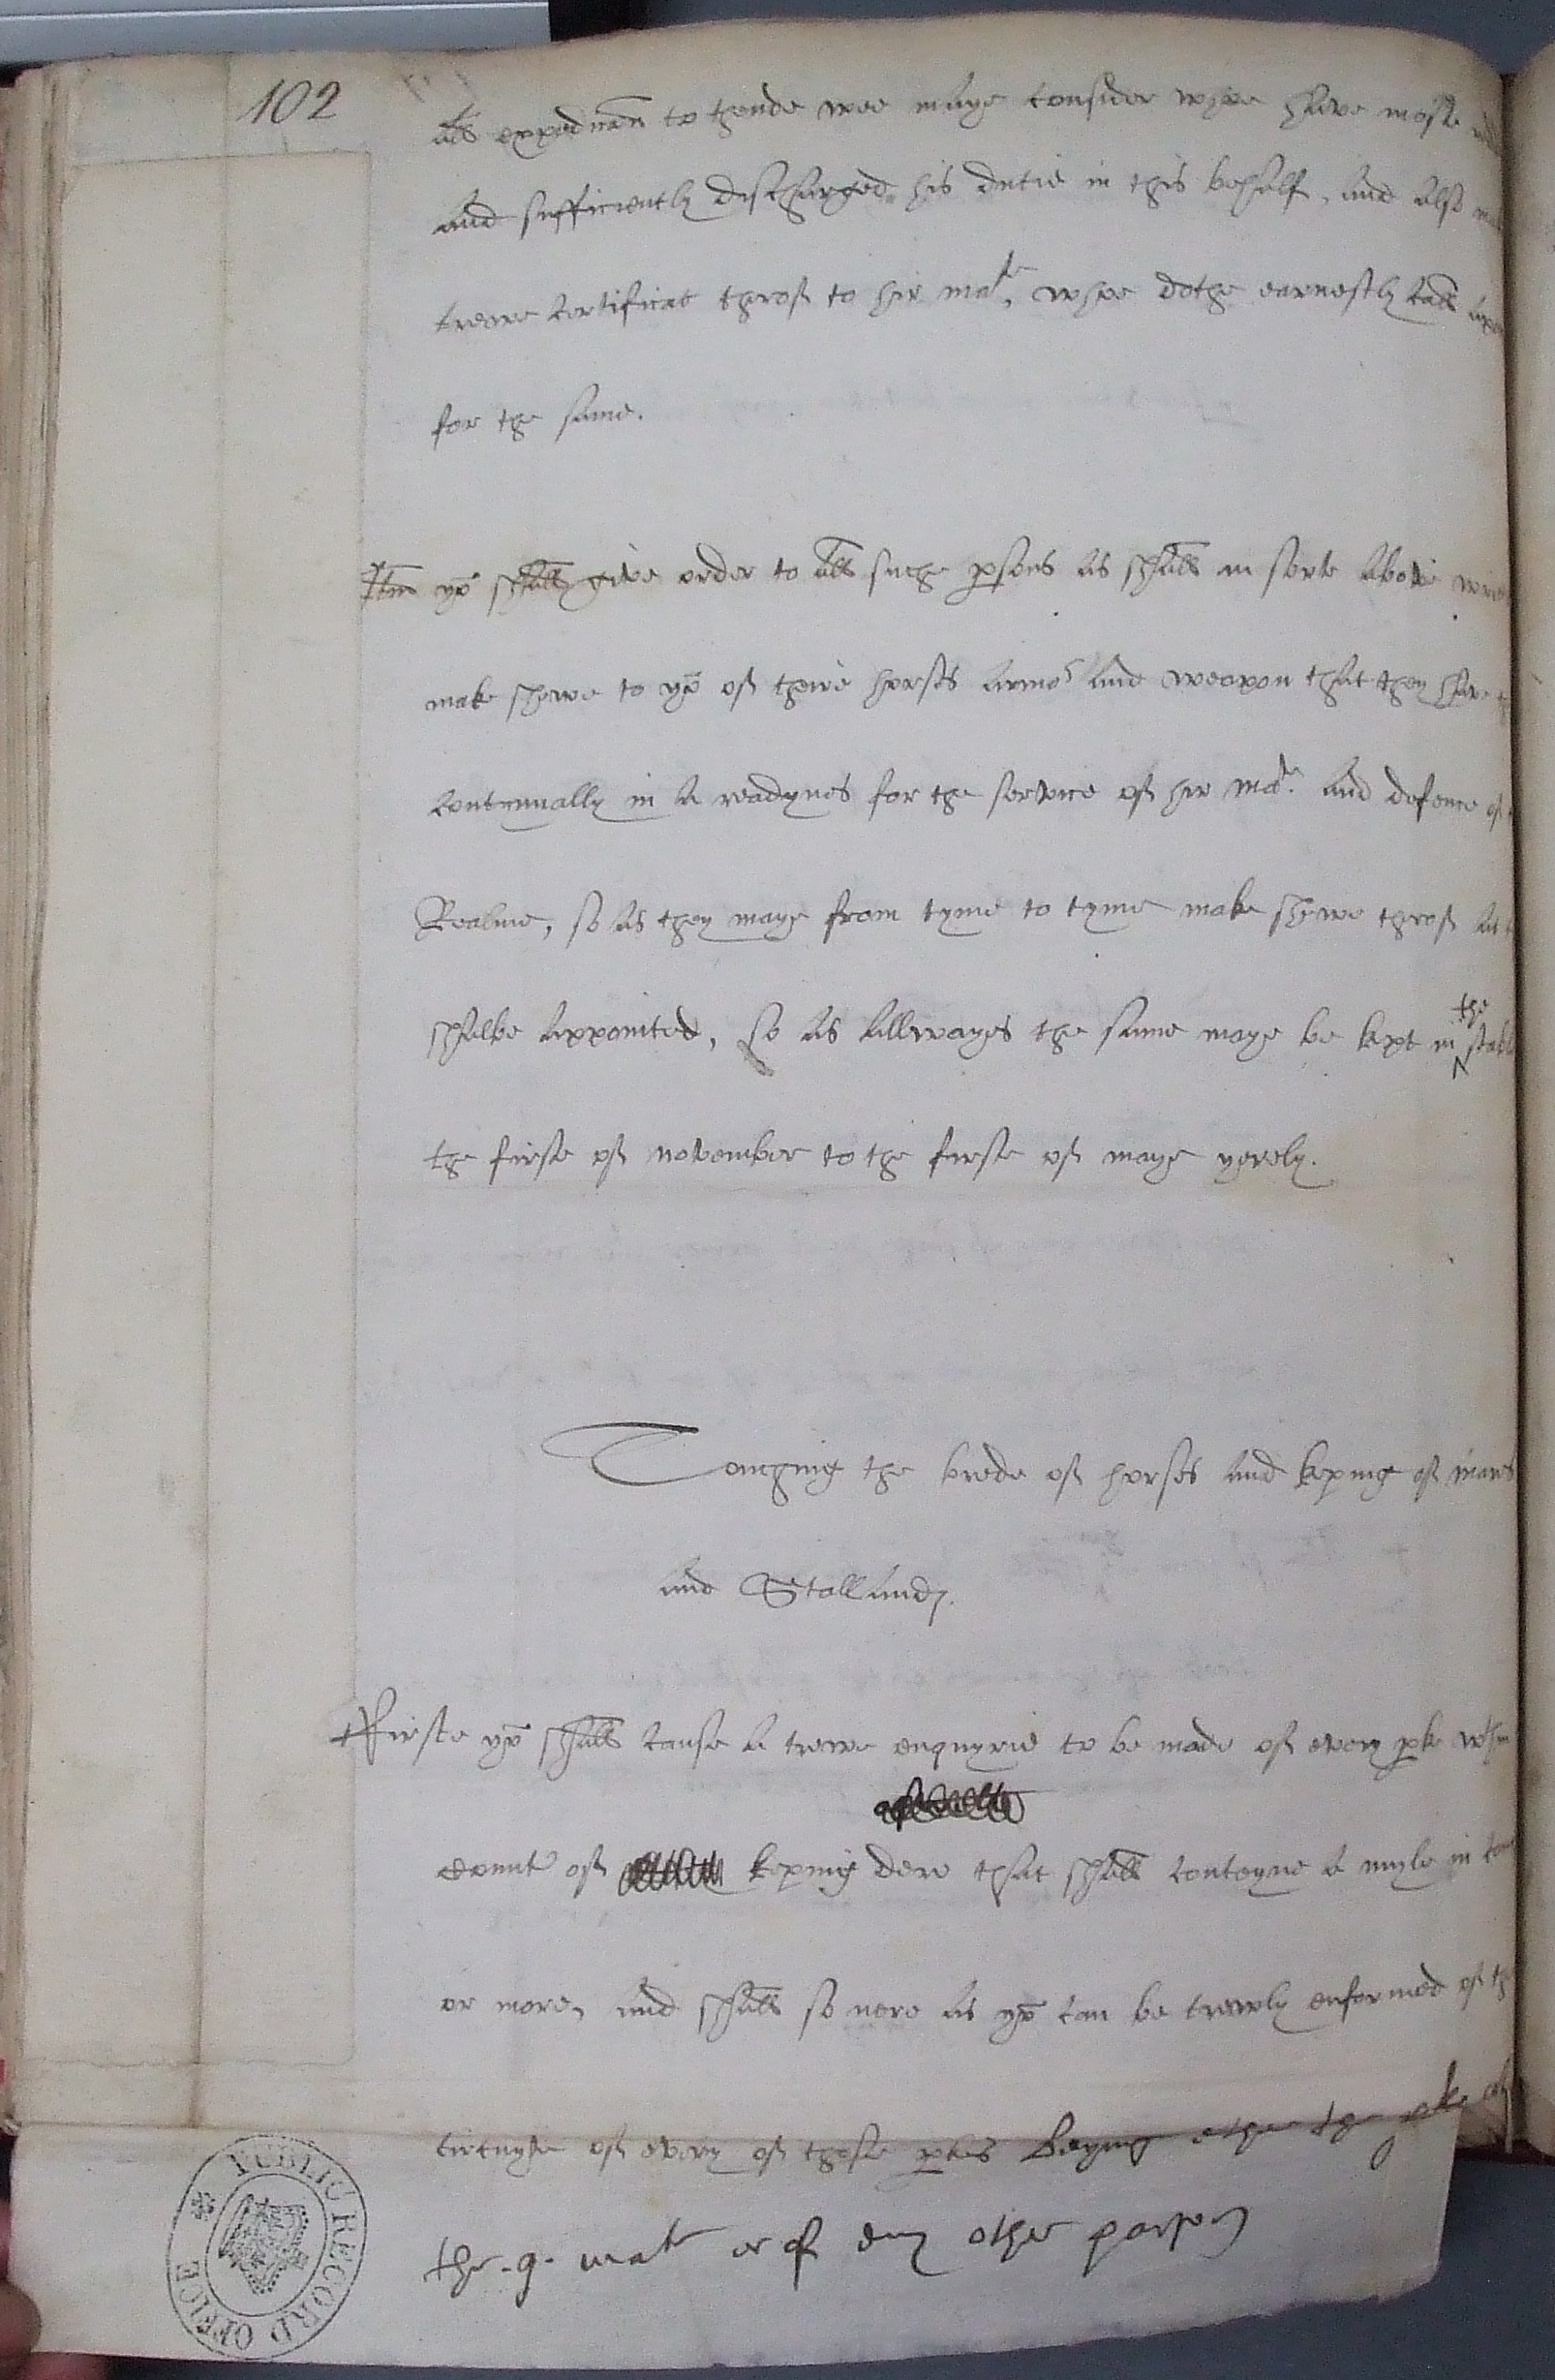 102
as expedient to thende wee maye consider whoe have moste
and sufficiently discharged his dutie in this behalf, and also
trewe certificat therof to hir mate, whoe dothe earnestly call upon
for the same.
Itm yo shall give order to all suche psons as shall in sorte above
make shewe to yo of theire horses armor and weapon that they have
contynually in a readynes for the service of hir mate. and defence of
Realme, so as they maye from tyme to tyme make shewe therof as
shalbe appointed, so as allwayes the same maye be kept in the stable
the firste of november to the firste of maye yerely.
Touching the brede of horses and keping of mares
and Stallands.
Firste yo shall cause a trewe enquyrie to be made of every pke wthin
count of keping dere that shall conteyne a myle in
or more, and shall so nere as yo can be trewly enformed of the
circuyte of every of those pkes beyng ether the pke
the q. mate or of eny other parson
PUBLIC RECORD OFFICE